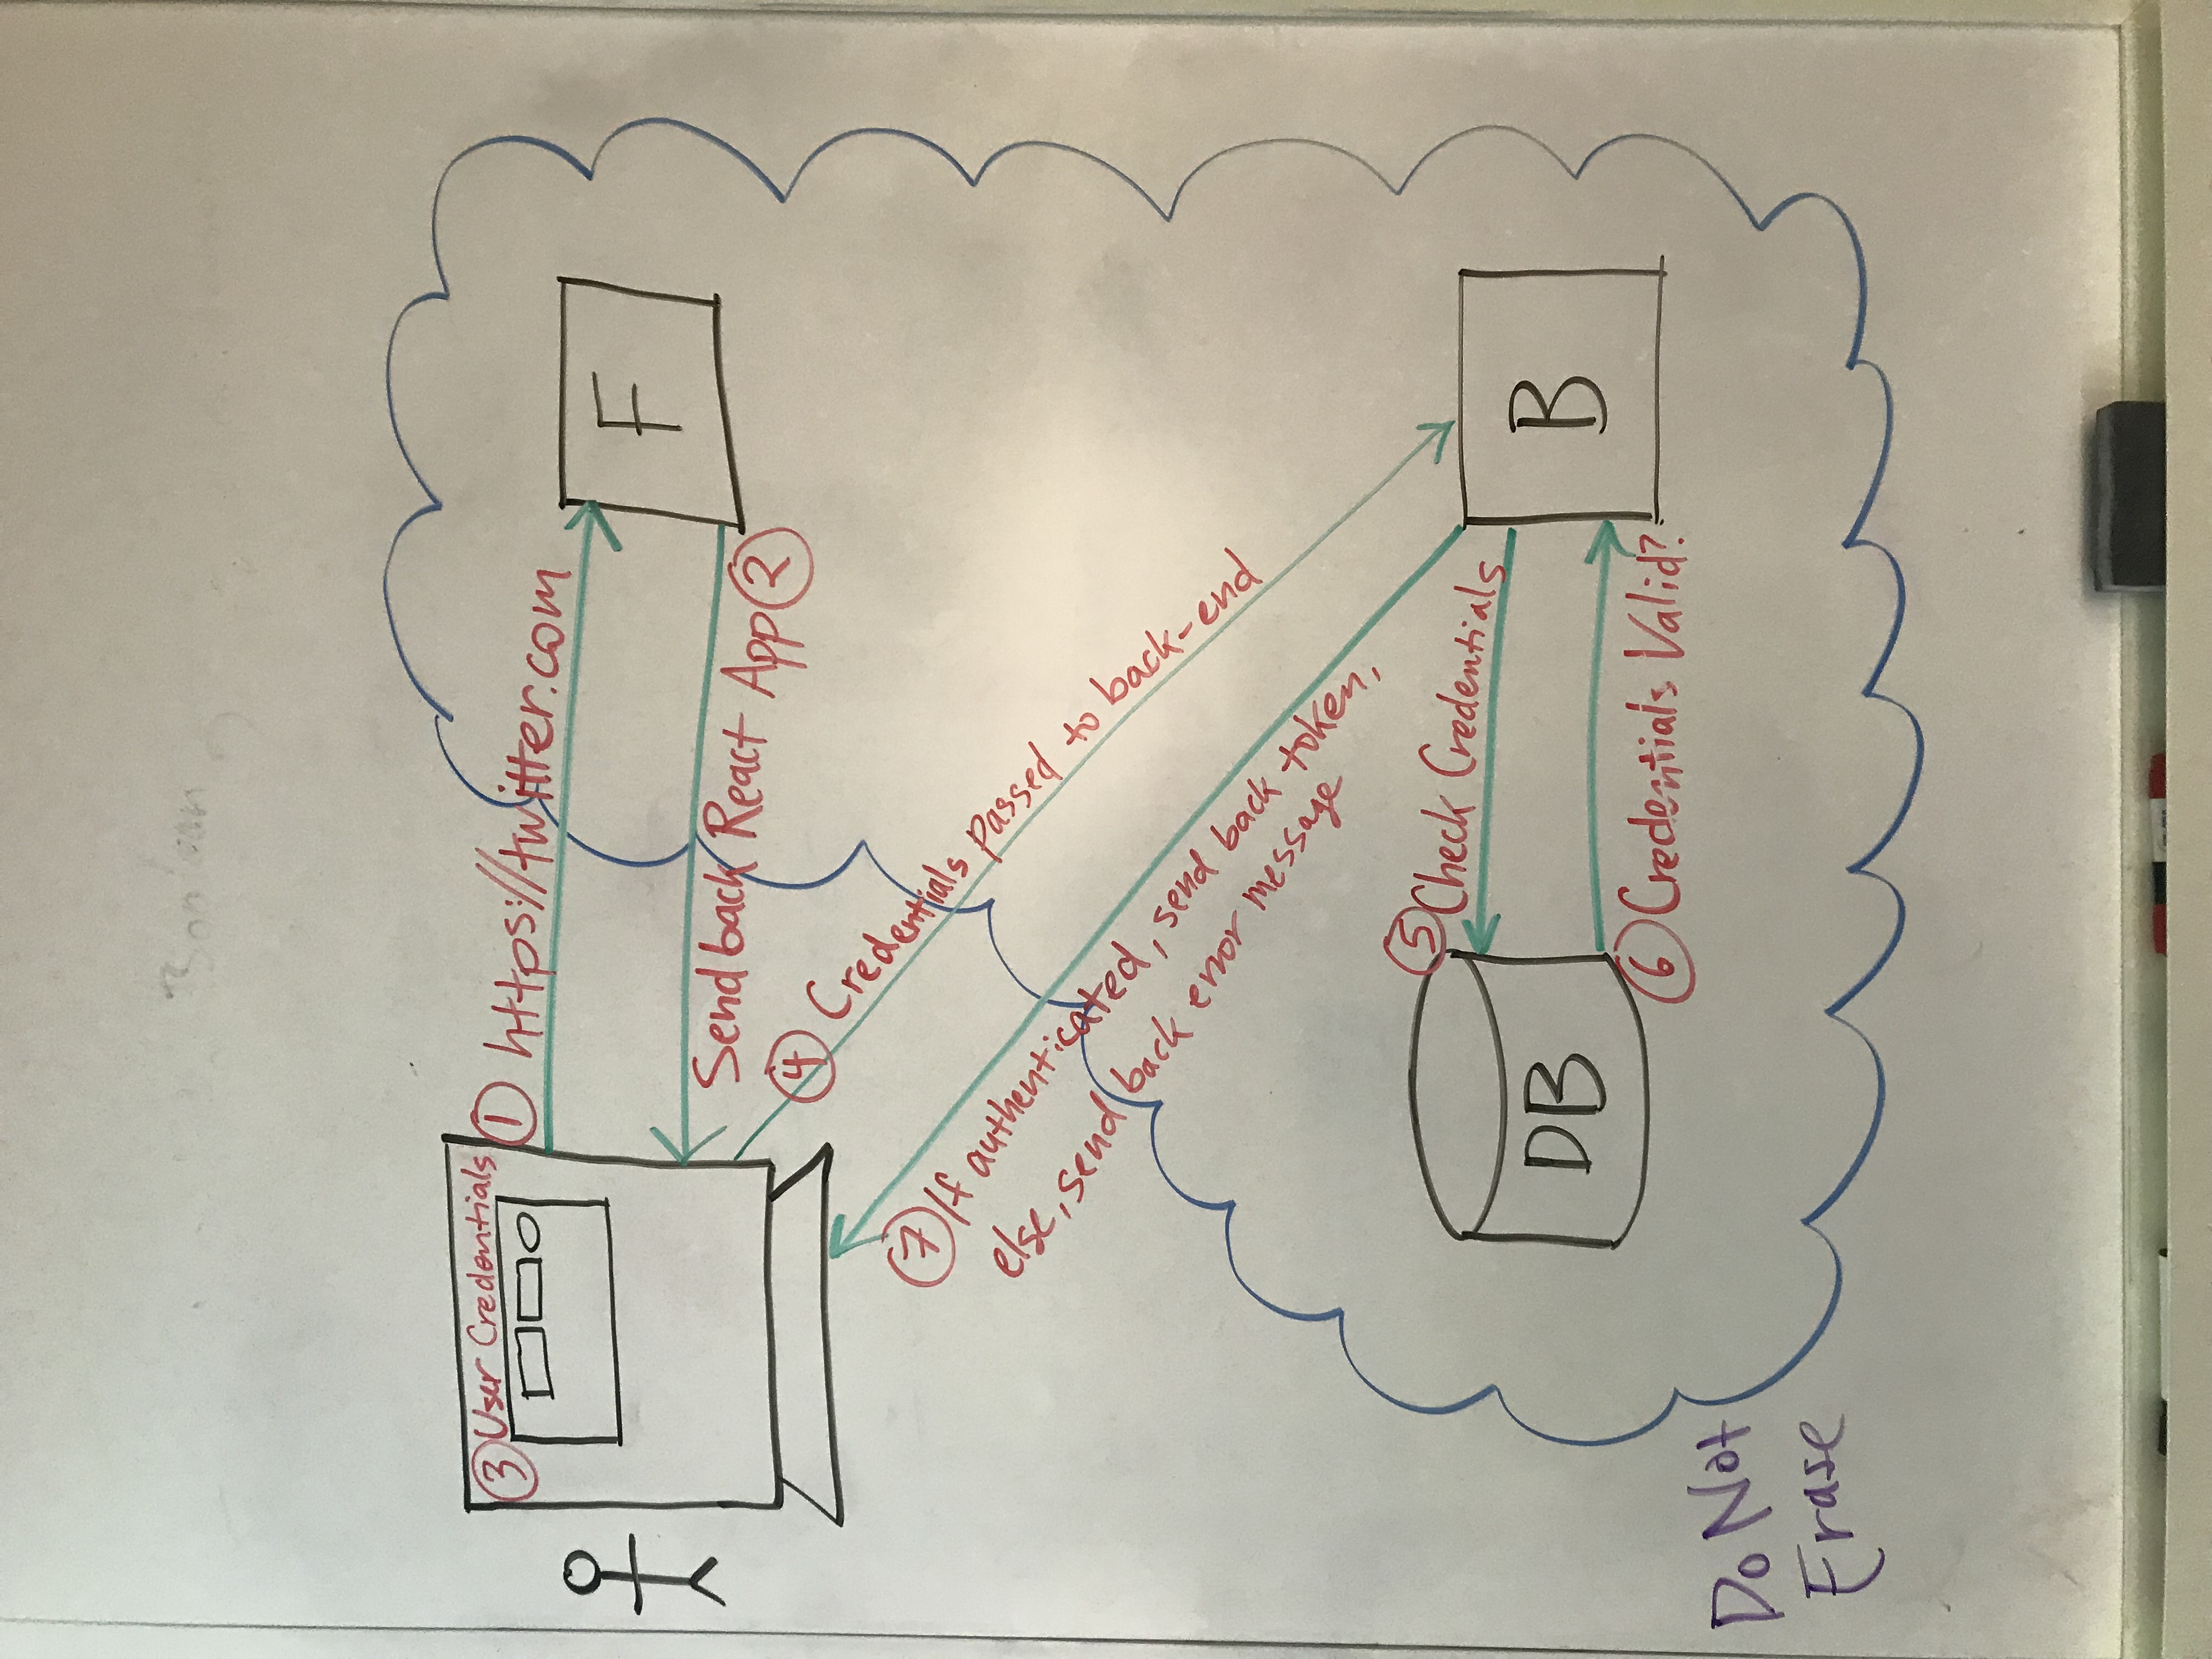 ③ User Credentials
① https://twitter.com
F
Send back React App ②
④ Credentials passed to back-end
⑦ If authenticated, send back token,
else, send back error message
⑤ Check Credentials
DB
B
⑥ Credentials Valid?
Do Not
Erase